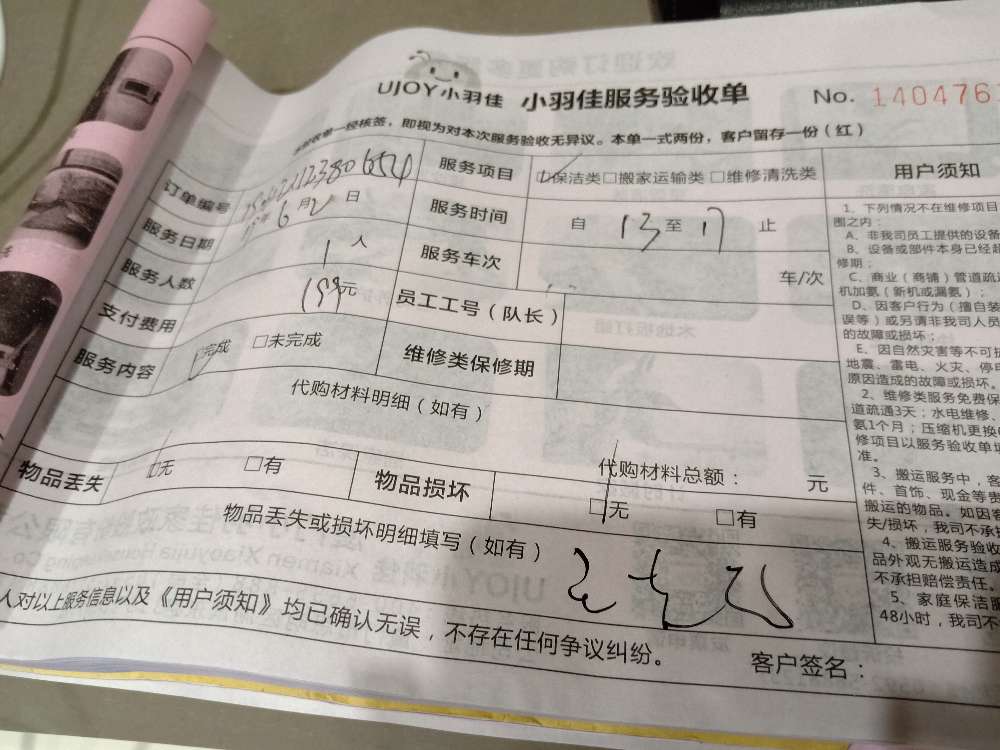 UJOY小羽佳 小羽佳服务验收单 No. 140476
一经核签，即视为对本次服务验收无异议。本单一式两份，客户留存一份（红）
订单编号
服务项目 □保洁类□搬家运输类 □维修清洗类
服务日期 年 6 月 2 日
服务时间 自 13 至 17 止
服务人数 1 人
服务车次 车/次
支付费用 199元
员工工号（队长）
服务内容 □完成 □未完成
维修类保修期
代购材料明细（如有）
代购材料总额： 元
物品丢失 □无 □有
物品损坏 □无 □有
物品丢失或损坏明细填写（如有）
人对以上服务信息以及《用户须知》均已确认无误，不存在任何争议纠纷。
客户签名：
用户须知
1、下列情况不在维修项目
围之内：
A、非我司员工提供的设备
B、设备或部件本身已经超
修期；
C、商业（商铺）管道疏通
机加氨（新机或漏氨）；
D、因客户行为（擅自装
误等）或另请非我司人员
的故障或损坏；
E、因自然灾害等不可抗
地震、雷电、火灾、停电
原因造成的故障或损坏。
2、维修类服务免费保
道疏通3天；水电维修、
氨1个月；压缩机更换
修项目以服务验收单填
准。
3、搬运服务中，客
件、首饰、现金等贵
搬运的物品。如因客
失/损坏，我司不承担
4、搬运服务验收
品外观无搬运造成
不承担赔偿责任。
5、家庭保洁服
48小时，我司不